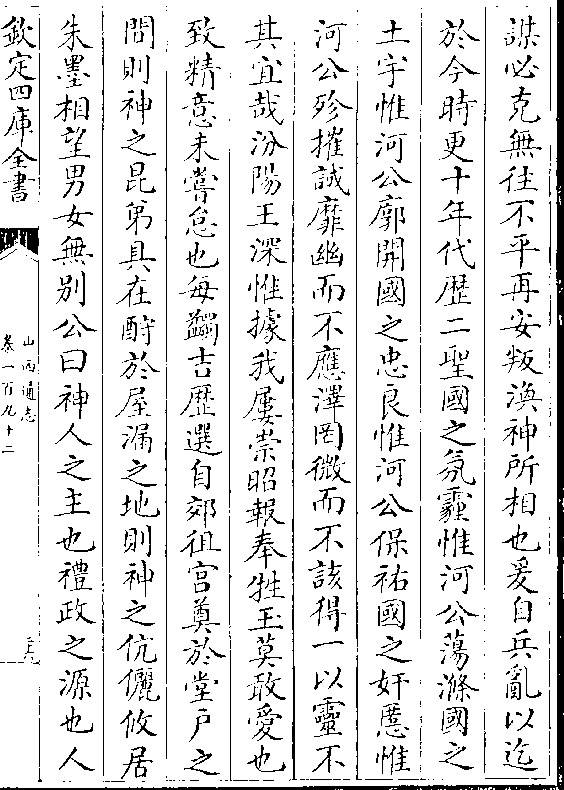 謀必克無往不平再安叛渙神所相也爰自兵亂以迄
於今時更十年代歴二聖國之氛霾惟河公蕩滌國之
土宇惟河公廓開國之忠良惟河公保祐國之奸慝惟
河公殄摧誠靡幽而不應澤罔微而不該得一以靈不
其宜哉汾陽王深惟據我屢崇昭報奉牲玉莫敢愛也
致精意未嘗怠也每蠲吉歴選自郊徂宮奠於堂戶之
間則神之昆弟具在酹於屋漏之地則神之伉儷攸居
朱墨相望男女無別公曰神人之主也禮政之源也人
欽定四庫全書
山西通志
卷一百九十二
三九